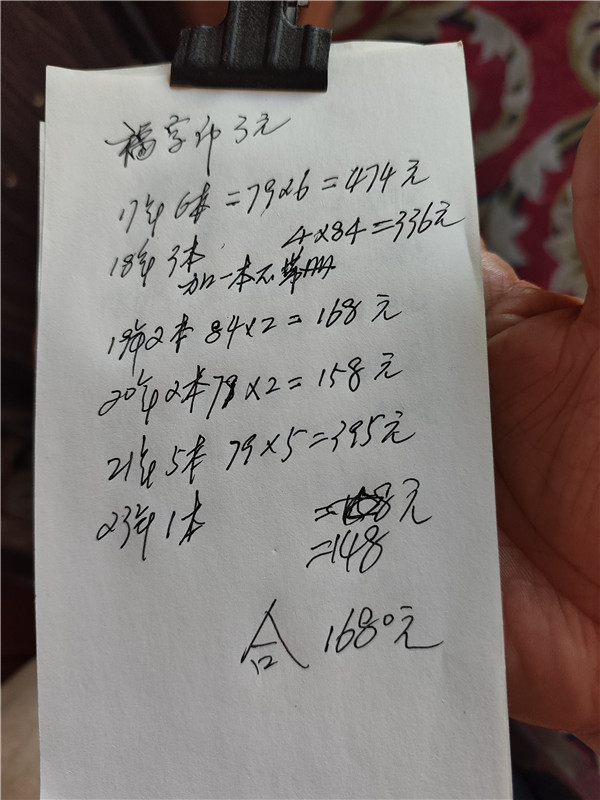 福字印 3元
17年6本=79×6=474元
18年3本 4×84=336元
加一本不带册
19年2本 84×2=168元
20年2本79×2=158元
21年5本 79×5=395元
23年1本 元
=148
合 1680元